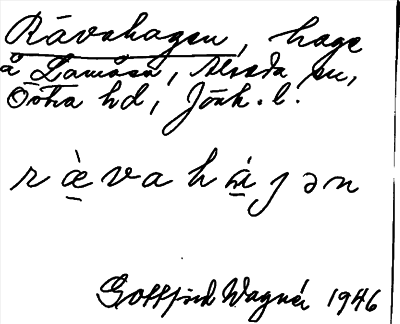 Rävahagen, hage
å Lamåsa, Alseda sn,
Östra hd, Jönk. l.
rὰ̠vahά̠ȷən
Gottfrid Wagnér 1946